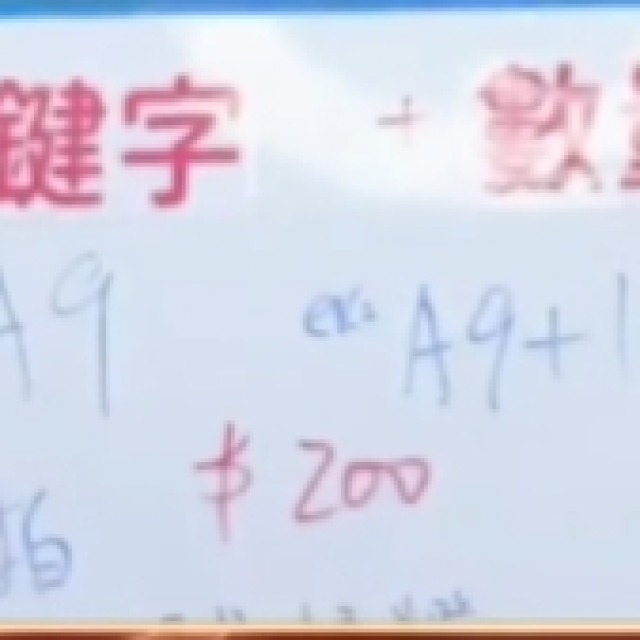 鍵字 + 數
A9 ex: A9+1
$200